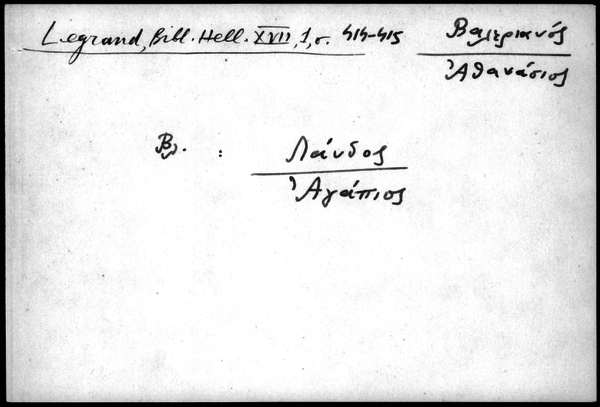 Legrand, Bibl. Hell. XVII, 1, σ. 414-415
Βαλεριανός
Ἀθανάσιος
Βλ. :
Λάνδος
Ἀγάπιος